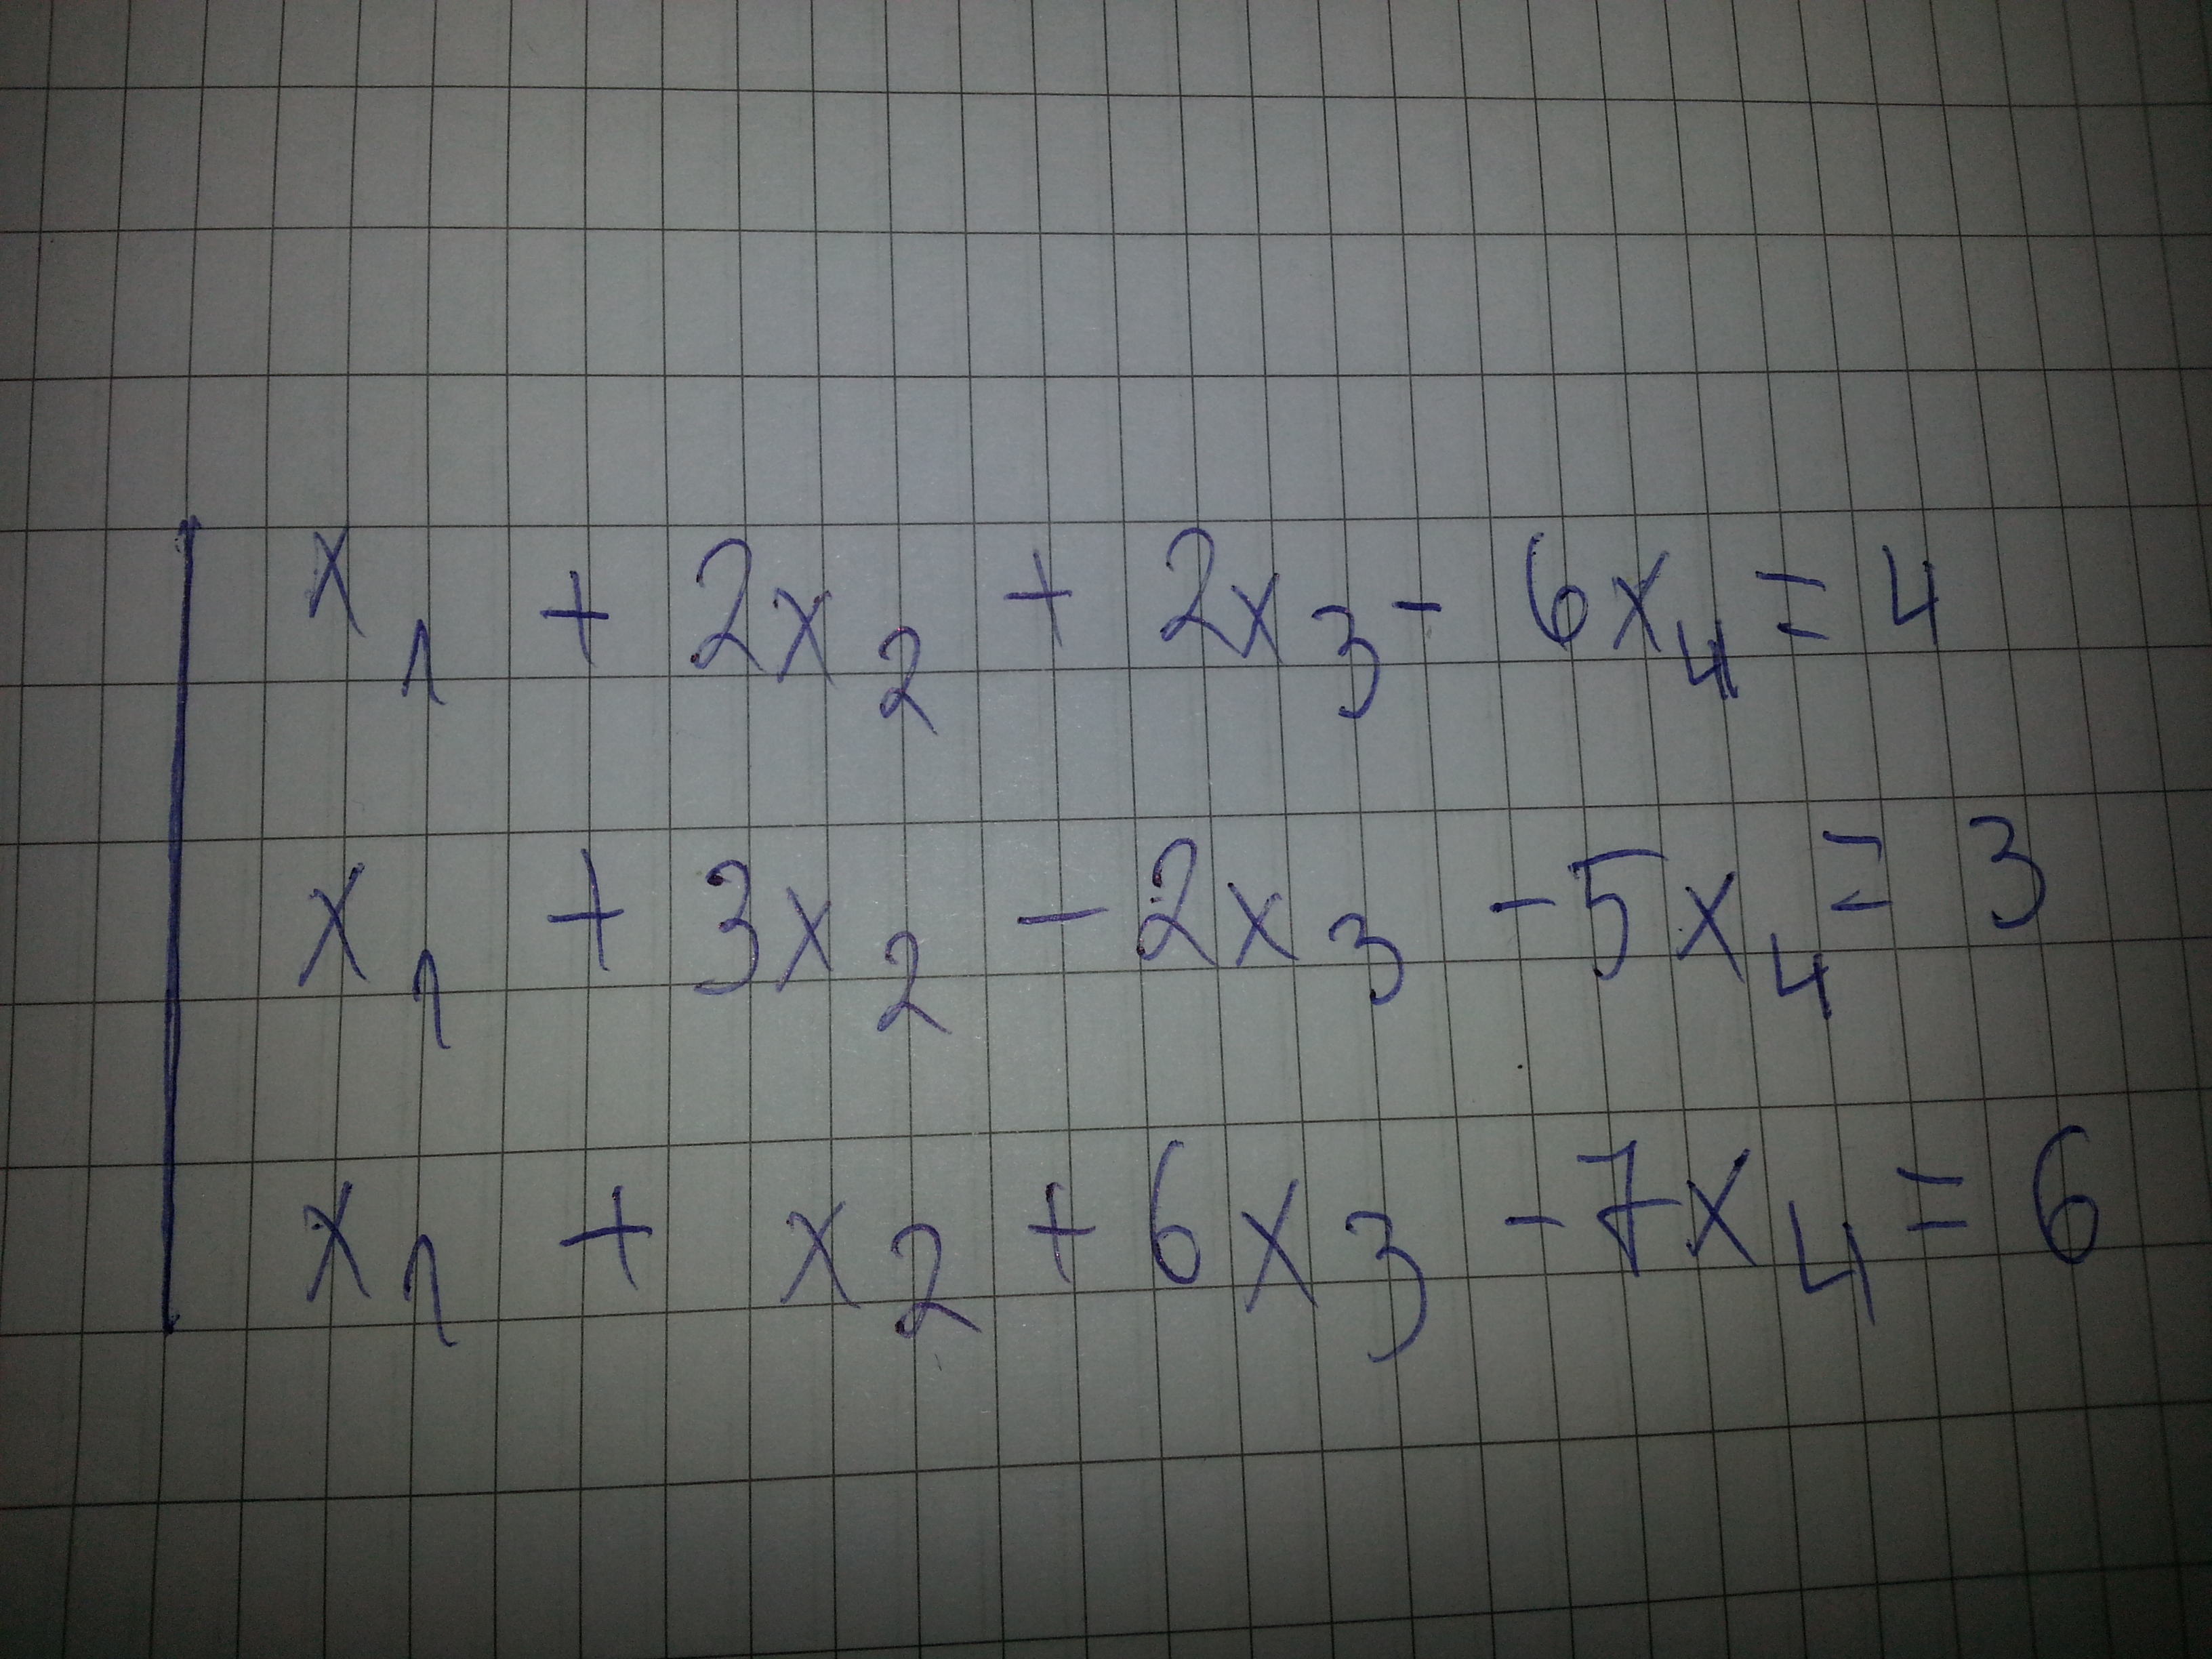 x₁ + 2x₂ + 2x₃ - 6x₄ = 4
x₁ + 3x₂ - 2x₃ - 5x₄ = 3
x₁ + x₂ + 6x₃ - 7x₄ = 6